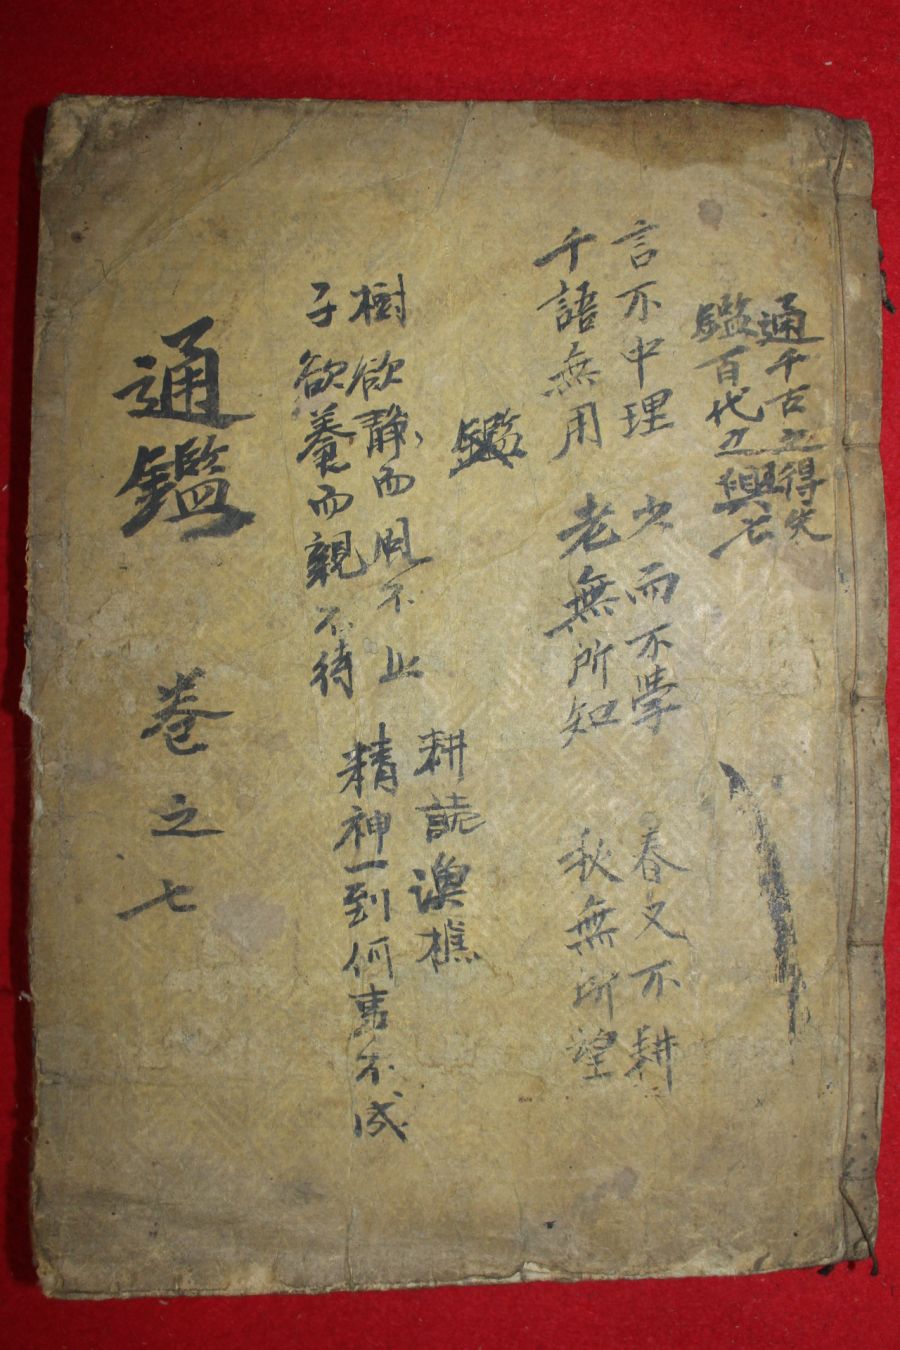 通千古之得失
鑑百代之興亡
言不中理 少而不學 春不耕
千語無用 老無所知 秋無所望
鑑
樹欲静而風不止
耕樵
子欲養而親不待
精神一到何事不成
通鑑 卷之七